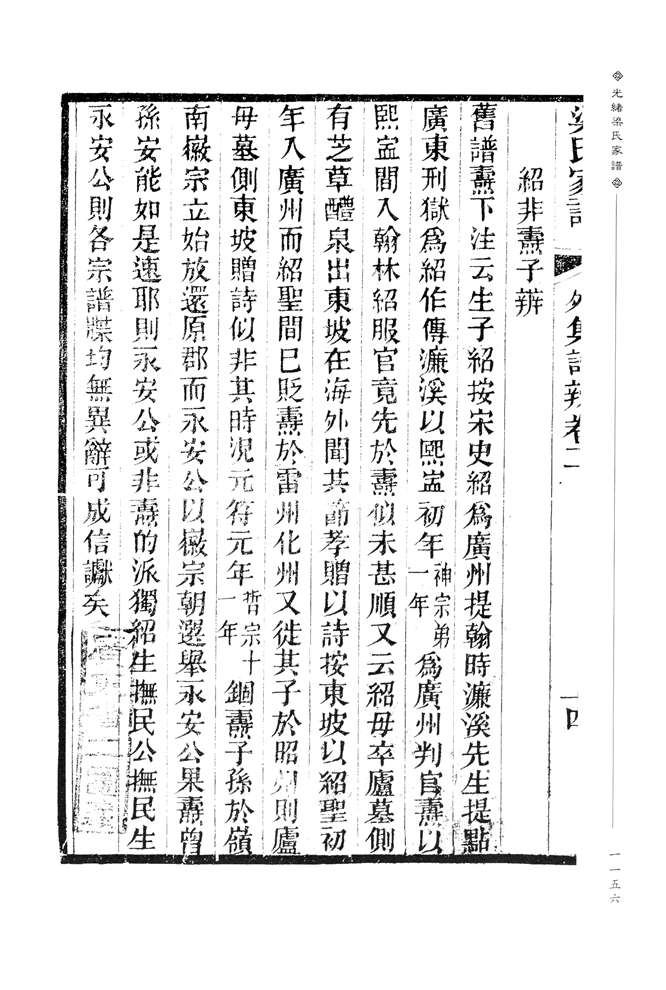 光緒梁氏家譜
一一五六
梁氏家譜 外集詩辨卷二 一四
紹非燾子辨
舊譜燾下注云生子紹按宋史紹為廣州提翰時濂溪先生提點
廣東刑獄爲紹作傳濂溪以熙寍初年神宗弟一年爲廣州判官燾以
熙寍間入翰林紹服官竟先於燾似未甚順又云紹毋卒廬墓側
有芝草醴泉出東坡在海外聞其節孝贈以詩按東坡以紹聖初
年入廣州而紹聖間巳貶燾於雷州化州又徙其子於昭州則廬
毋墓側東坡贈詩似非其時況元符元年哲宗十一年錮燾子孫於嶺
南徽宗立始放還原郡而永安公以徽宗朝選舉永安公果燾曾
孫安能如是速耶則永安公或非燾的派獨紹生撫民公撫民生
永安公則各宗譜牒均無異辭可成信讞矣